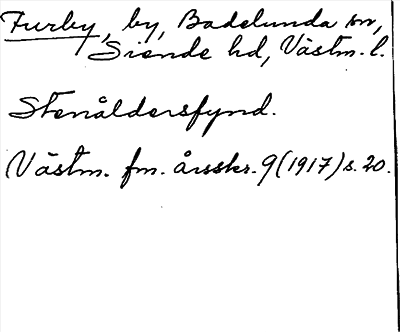 Furby, by, Badelunda sn,
Siende hd, Västm. l.
Stenåldersfynd.
Västm. fm. årsskr. 9 (1917) s. 20.